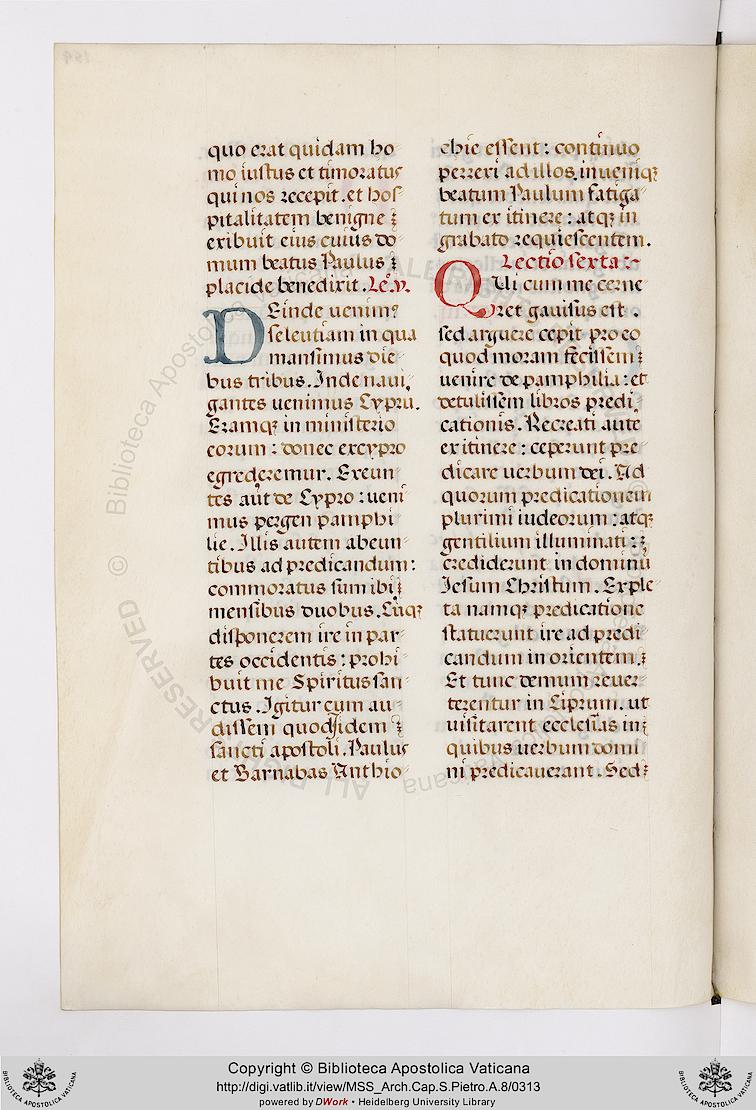 quo erat quidam ho
mo iustus et timoratus
qui nos recepit. et hos
pitalitatem benigne
exibuit eius cuius do
mum beatus Paulus
placide benedixit. Le. v.
DEinde uenimꝰ
seleutiam in qua
mansimus die
bus tribus. Inde naui
gantes uenimus Cypru.
Eramqꝫ in ministerio
eorum: donec ex cypro
egrederemur. Exeun
tes aut̃ de Cypro: ueni
mus pergen pamphi
lie. Illis autem abeun
tibus ad predicandum:
commoratus sum ibi
mensibus duobus. Cũqꝫ
disponerem ire in par
tes occidentis: prohi
buit me Spiritus san
ctus. Igitur cum au
dissem quod ijdem
sancti apostoli. Paulus
et Barnabas Anthio
chie essent: continuo
perrexi ad illos. inueniqꝫ
beatum Paulum fatiga
tum ex itinere: atqꝫ in
grabato requiescentem.
Lectio sexta:
QUi cum me cerne
ret gauisus est.
sed arguere cepit pro eo
quod moram fecissem
uenire de pamphilia: et
detulissem libros predi
cationis. Recreati aute
ex itinere: ceperunt pre
dicare uerbum dei. Ad
quorum predicationem
plurimi iudeorum: atqꝫ
gentilium illuminati:
crediderunt in dominũ
Jesum Christum. Exple
ta namqꝫ predicatione
statuerunt ire ad predi
candum in orientem.
Et tunc demum reuer
terentur in Ciprum. ut
uisitarent ecclesias in
quibus uerbum domi
ni predicauerant. Sed
Copyright © Biblioteca Apostolica Vaticana
http://digi.vatlib.it/view/MSS_Arch.Cap.S.Pietro.A.8/0313
powered by DWork • Heidelberg University Library